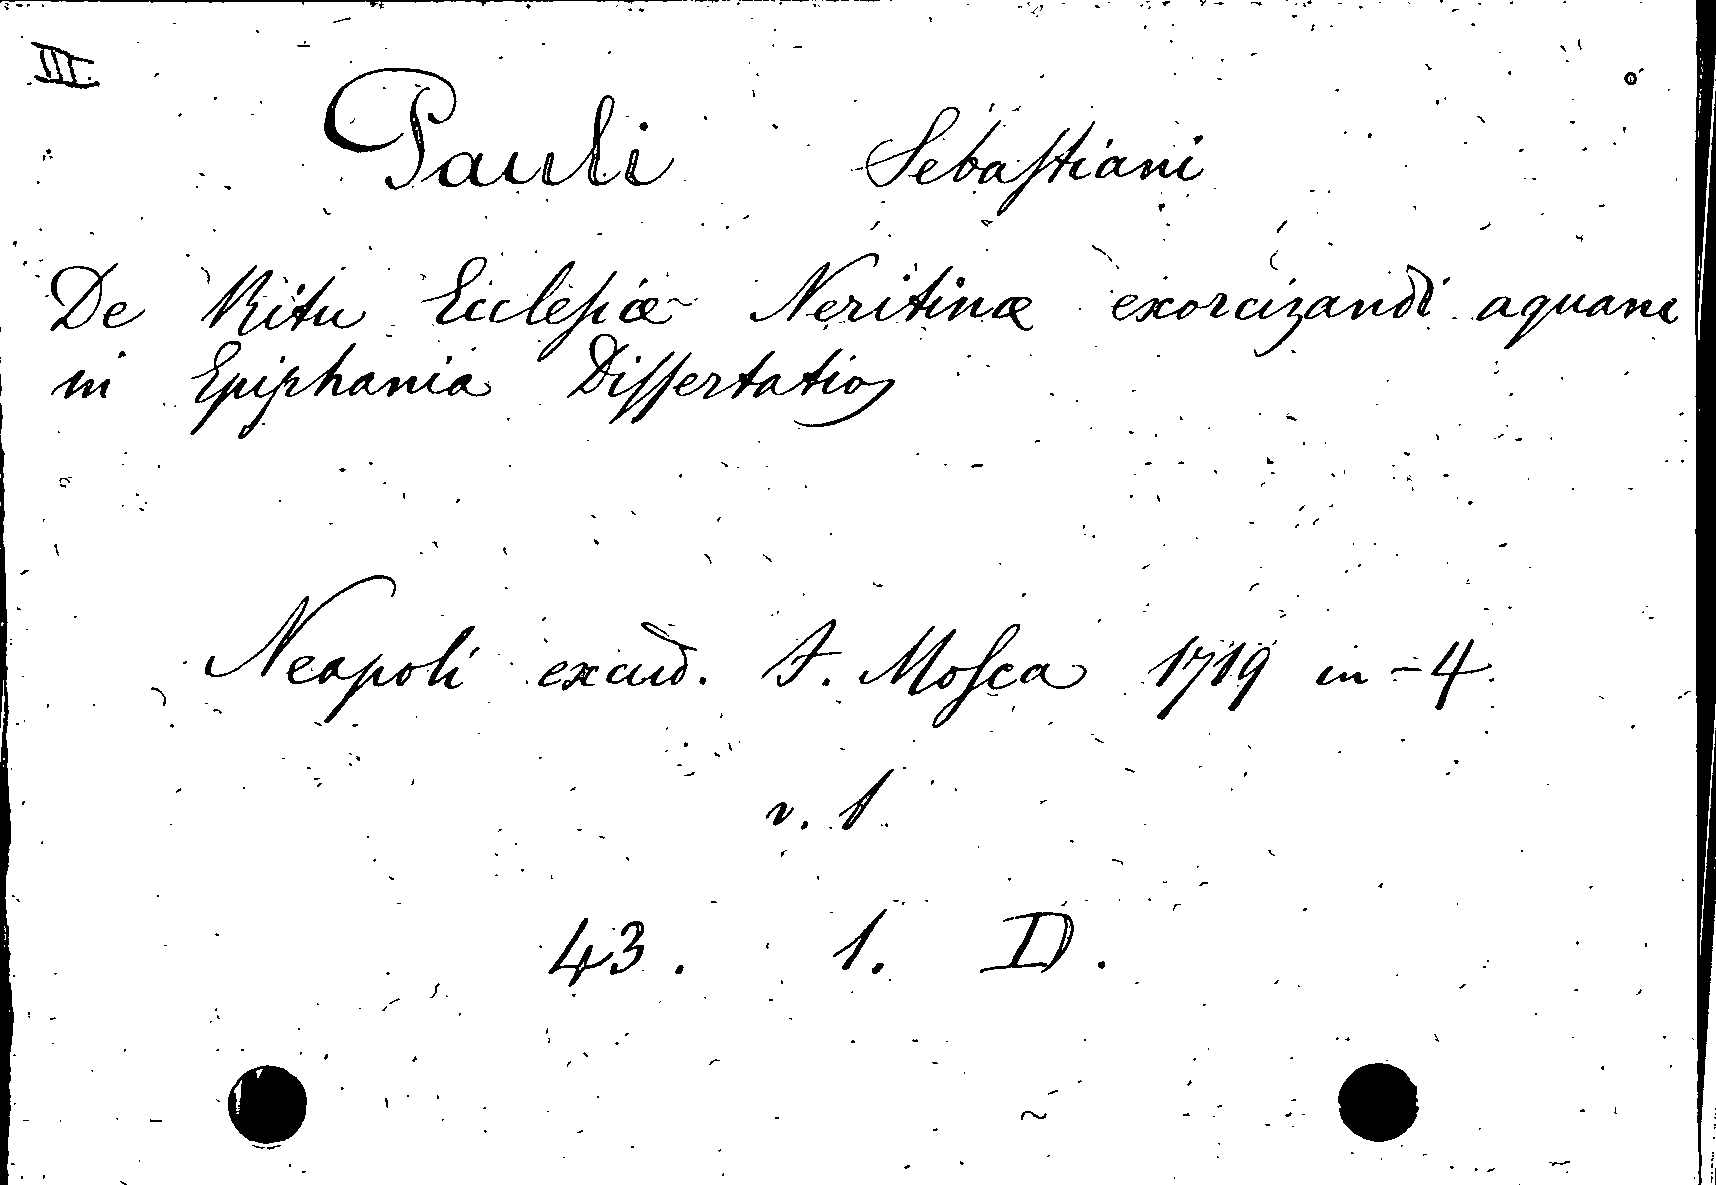 III.
Pauli Sebaſtiani
De Ritu Ecclesiæ Neritinæ exorcizandi aquam
in Epiphania Diſſertatio
Neapoli excud. F. Moſca 1719 in-4.
v. 1
43. 1. D.